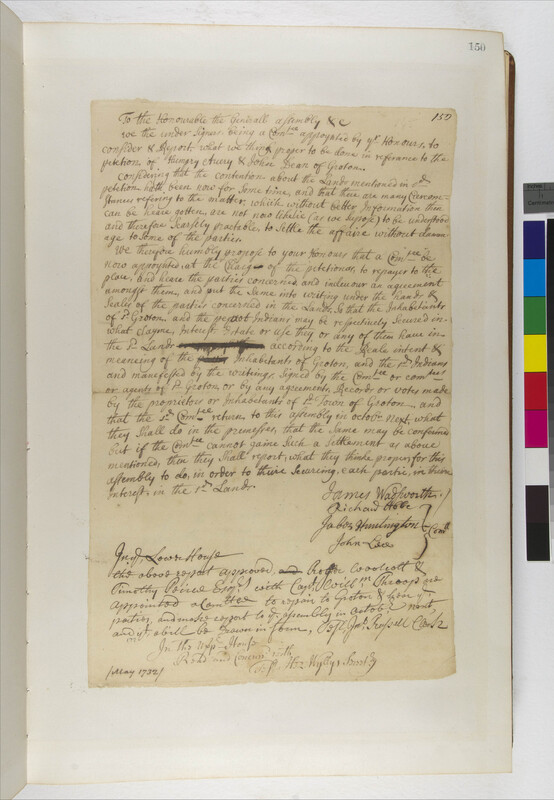 150
150
To the Honourable the Generall assembly &c
we the under Signers being a Comtee appoynted by yr Honours, to
consider & Report, what we think proper to be done in referance to the
petition, of Hungry Avery & John Bean of Groton.
Considering that the contention about the Lands mentioned in sd
petition hath been now for Some time, and that there are many Circum-
stances refering to the matter, which without better Information then
can be heare gotten, are not now likelie (as we suppose) to be understood
and therefore Scarsely practable to Settle the affaire without dam
age to Some of the parties.
We therefore humbly propose to your Honours that a Comtee be
now appoynted at the Charge of the petitioners, to repayer to the
place, and heare the parties concerned, and indeavour an agreement
amongst them, and put the Same into writing under the hands &
Seales of the parties concerned in the Lands, So that the Inhabitants
of sd Groton, and the pequot Indians may be respectively Secured in
what Clayme, Interest, Estate or use they or any of them have in
the sd Lands according to the Reale intent &
meaneing of the Inhabitants of Groton, and the sd Indians
and manifested by the writings, Signed by the Comtee or comtees
or agents of sd Groton, or by any agreements, Records or votes made
by the proprietors or Inhabitants of sd Town of Groton, and
that the sd Comtee returne to this assembly in octobr next, what
they Shall do in the premesses, that the Same may be confirmed
but if the Comtee cannot gaine Such a Settlement as above
mentioned, then they Shall report, what they thinke proper for this
assembly to do, in order to their Securing, each partie, in their
Interest, in the sd Lands.
James Wadsworth
Richard
Jabez Huntington
John Lee
Comtt
In ye Lower House
the above report approved, and Roger Woolcott &
Timothy Peirce Esqrs with Capt. Willm Throop are
appointed a Comttee to repair to Groton & hear ye
parties, and make report to ye assembly in october next,
and yt a bill be drawn in form, Test Jno Russell Clerk
In the Uppr House
Read and Concurrd with
Test Hez: Wyllys Secrety
May 1732